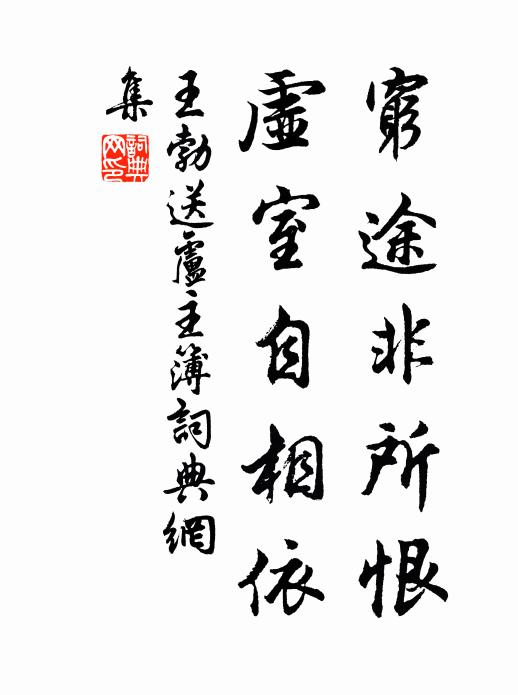 窮途非所恨
虛室自相依
王勃送盧主簿詞典網
集
詞典
网印